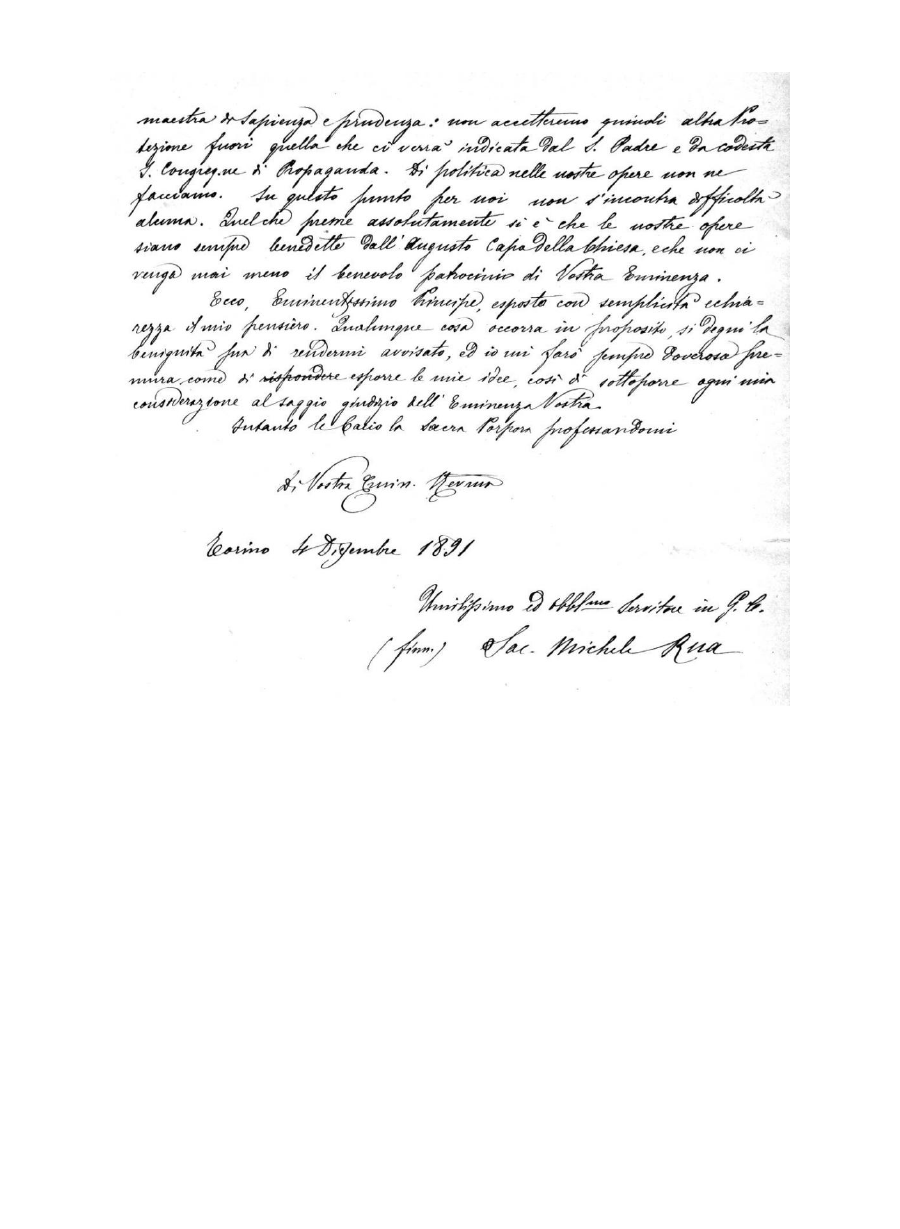 maestra di Sapienza e prudenza: non accetteremo quindi altra Pro=
tezione fuori quella che ci verrà indicata dal S. Padre e da codesta
S. Congreg.ne di Propaganda. Di politica nelle nostre opere non ne
facciamo. Su questo punto per noi non s'incontra difficoltà
alcuna. Quel che preme assolutamente si è che le nostre opere
siano sempre benedette dall'Augusto Capo della Chiesa, e che non ci
venga mai meno il benevolo patrocinio di Vostra Eminenza.
Ecco, Eminentissimo Principe, esposto con semplicità e chia=
rezza il mio pensiero. Qualunque cosa occorra in proposito, si degni la
benignità sua di rendermi avvisato, ed io mi farò sempre doverosa pre=
mura, come di rispondere esporre le mie idee, così di sottoporre ogni mia
considerazione al saggio giudizio dell'Eminenza Vostra.
Intanto le bacio la Sacra Porpora professandomi
Di Vostra Emin. Revma
Torino 4 Dicembre 1891
Umilissimo ed obblmo Servitore in G. C.
(firm.) Sac. Michele Rua